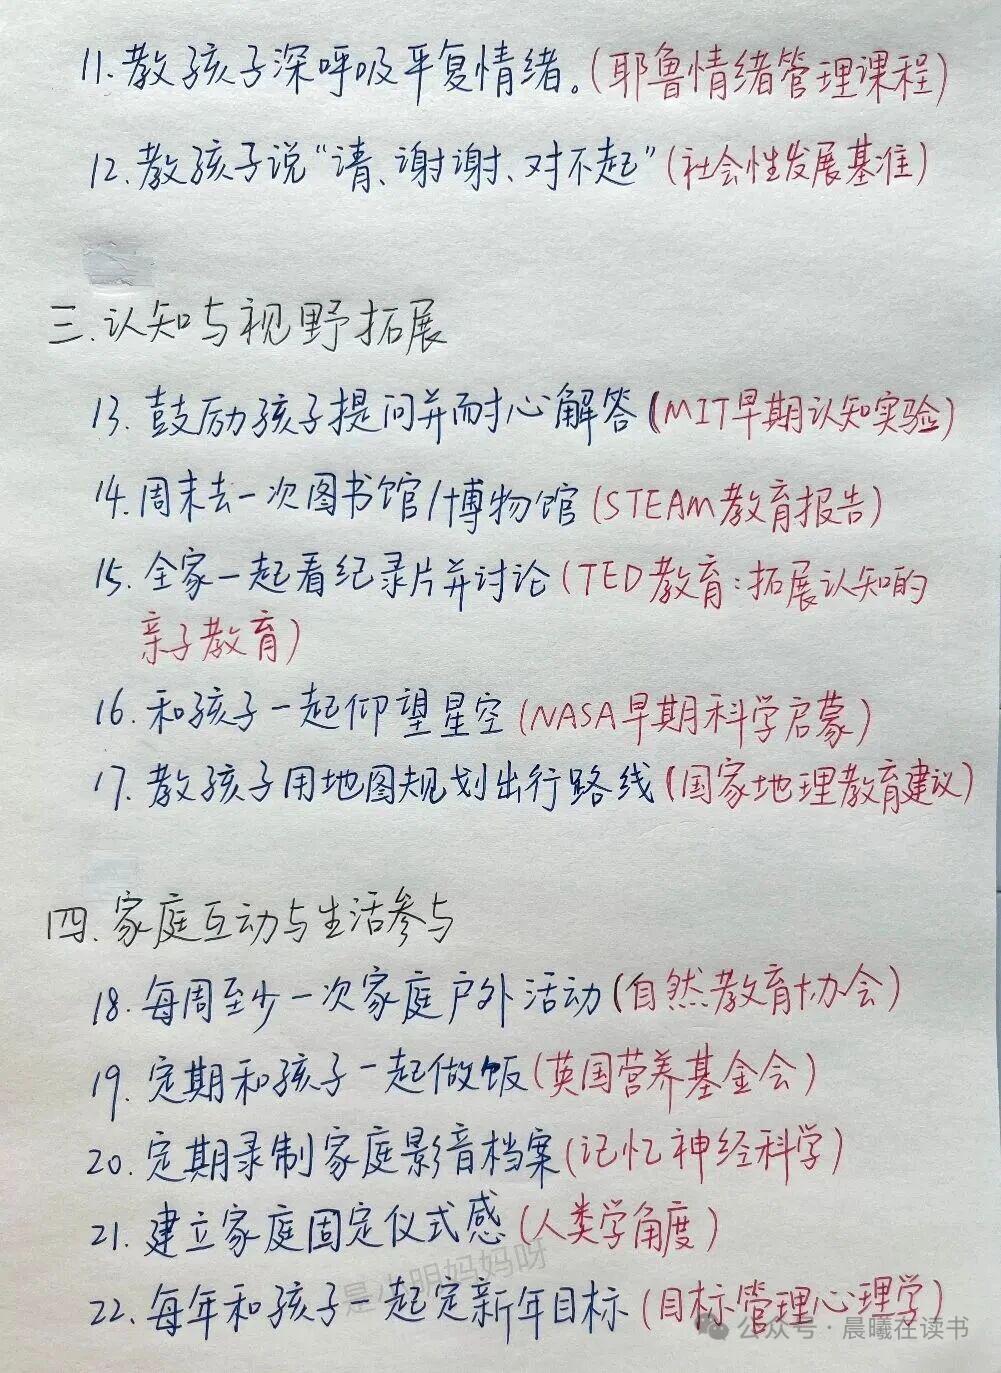 11.教孩子深呼吸平复情绪。(耶鲁情绪管理课程)
12.教孩子说“请、谢谢、对不起”(社会性发展基准)
三.认知与视野拓展
13.鼓励孩子提问并耐心解答(MIT早期认知实验)
14.周末去一次图书馆/博物馆(STEAM教育报告)
15.全家一起看纪录片并讨论(TED教育:拓展认知的
亲子教育)
16.和孩子一起仰望星空(NASA早期科学启蒙)
17.教孩子用地图规划出行路线(国家地理教育建议)
四.家庭互动与生活参与
18.每周至少一次家庭户外活动(自然教育协会)
19.定期和孩子一起做饭(英国营养基金会)
20.定期录制家庭影音档案(记忆神经科学)
21.建立家庭固定仪式感(人类学角度)
是小明妈妈呀
22.每年和孩子一起定新年目标(目标管理心理学)
公众号·晨曦在读书